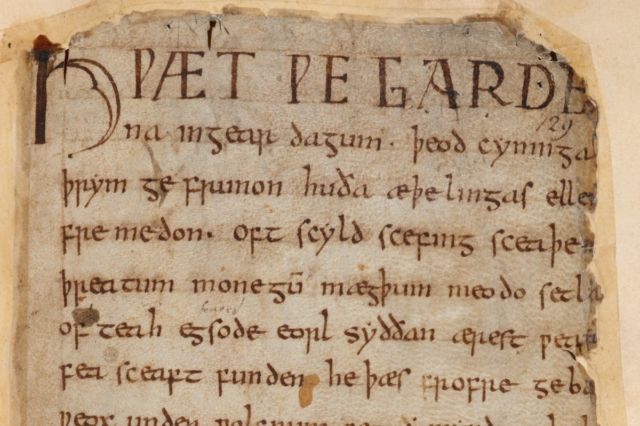 HǷÆT ǷE GARDE
129
na ingear dagum. þeod cyninga
þrym gefrunon huða æþelingas ellen
fremedon. oft scyld scefing sceaþe
þreatum monegū mægþum meodo setla
ofteah egsode eorl syððan ærest
fea sceaft funden he þæs frofre geba
ƿeox under ƿolcnum